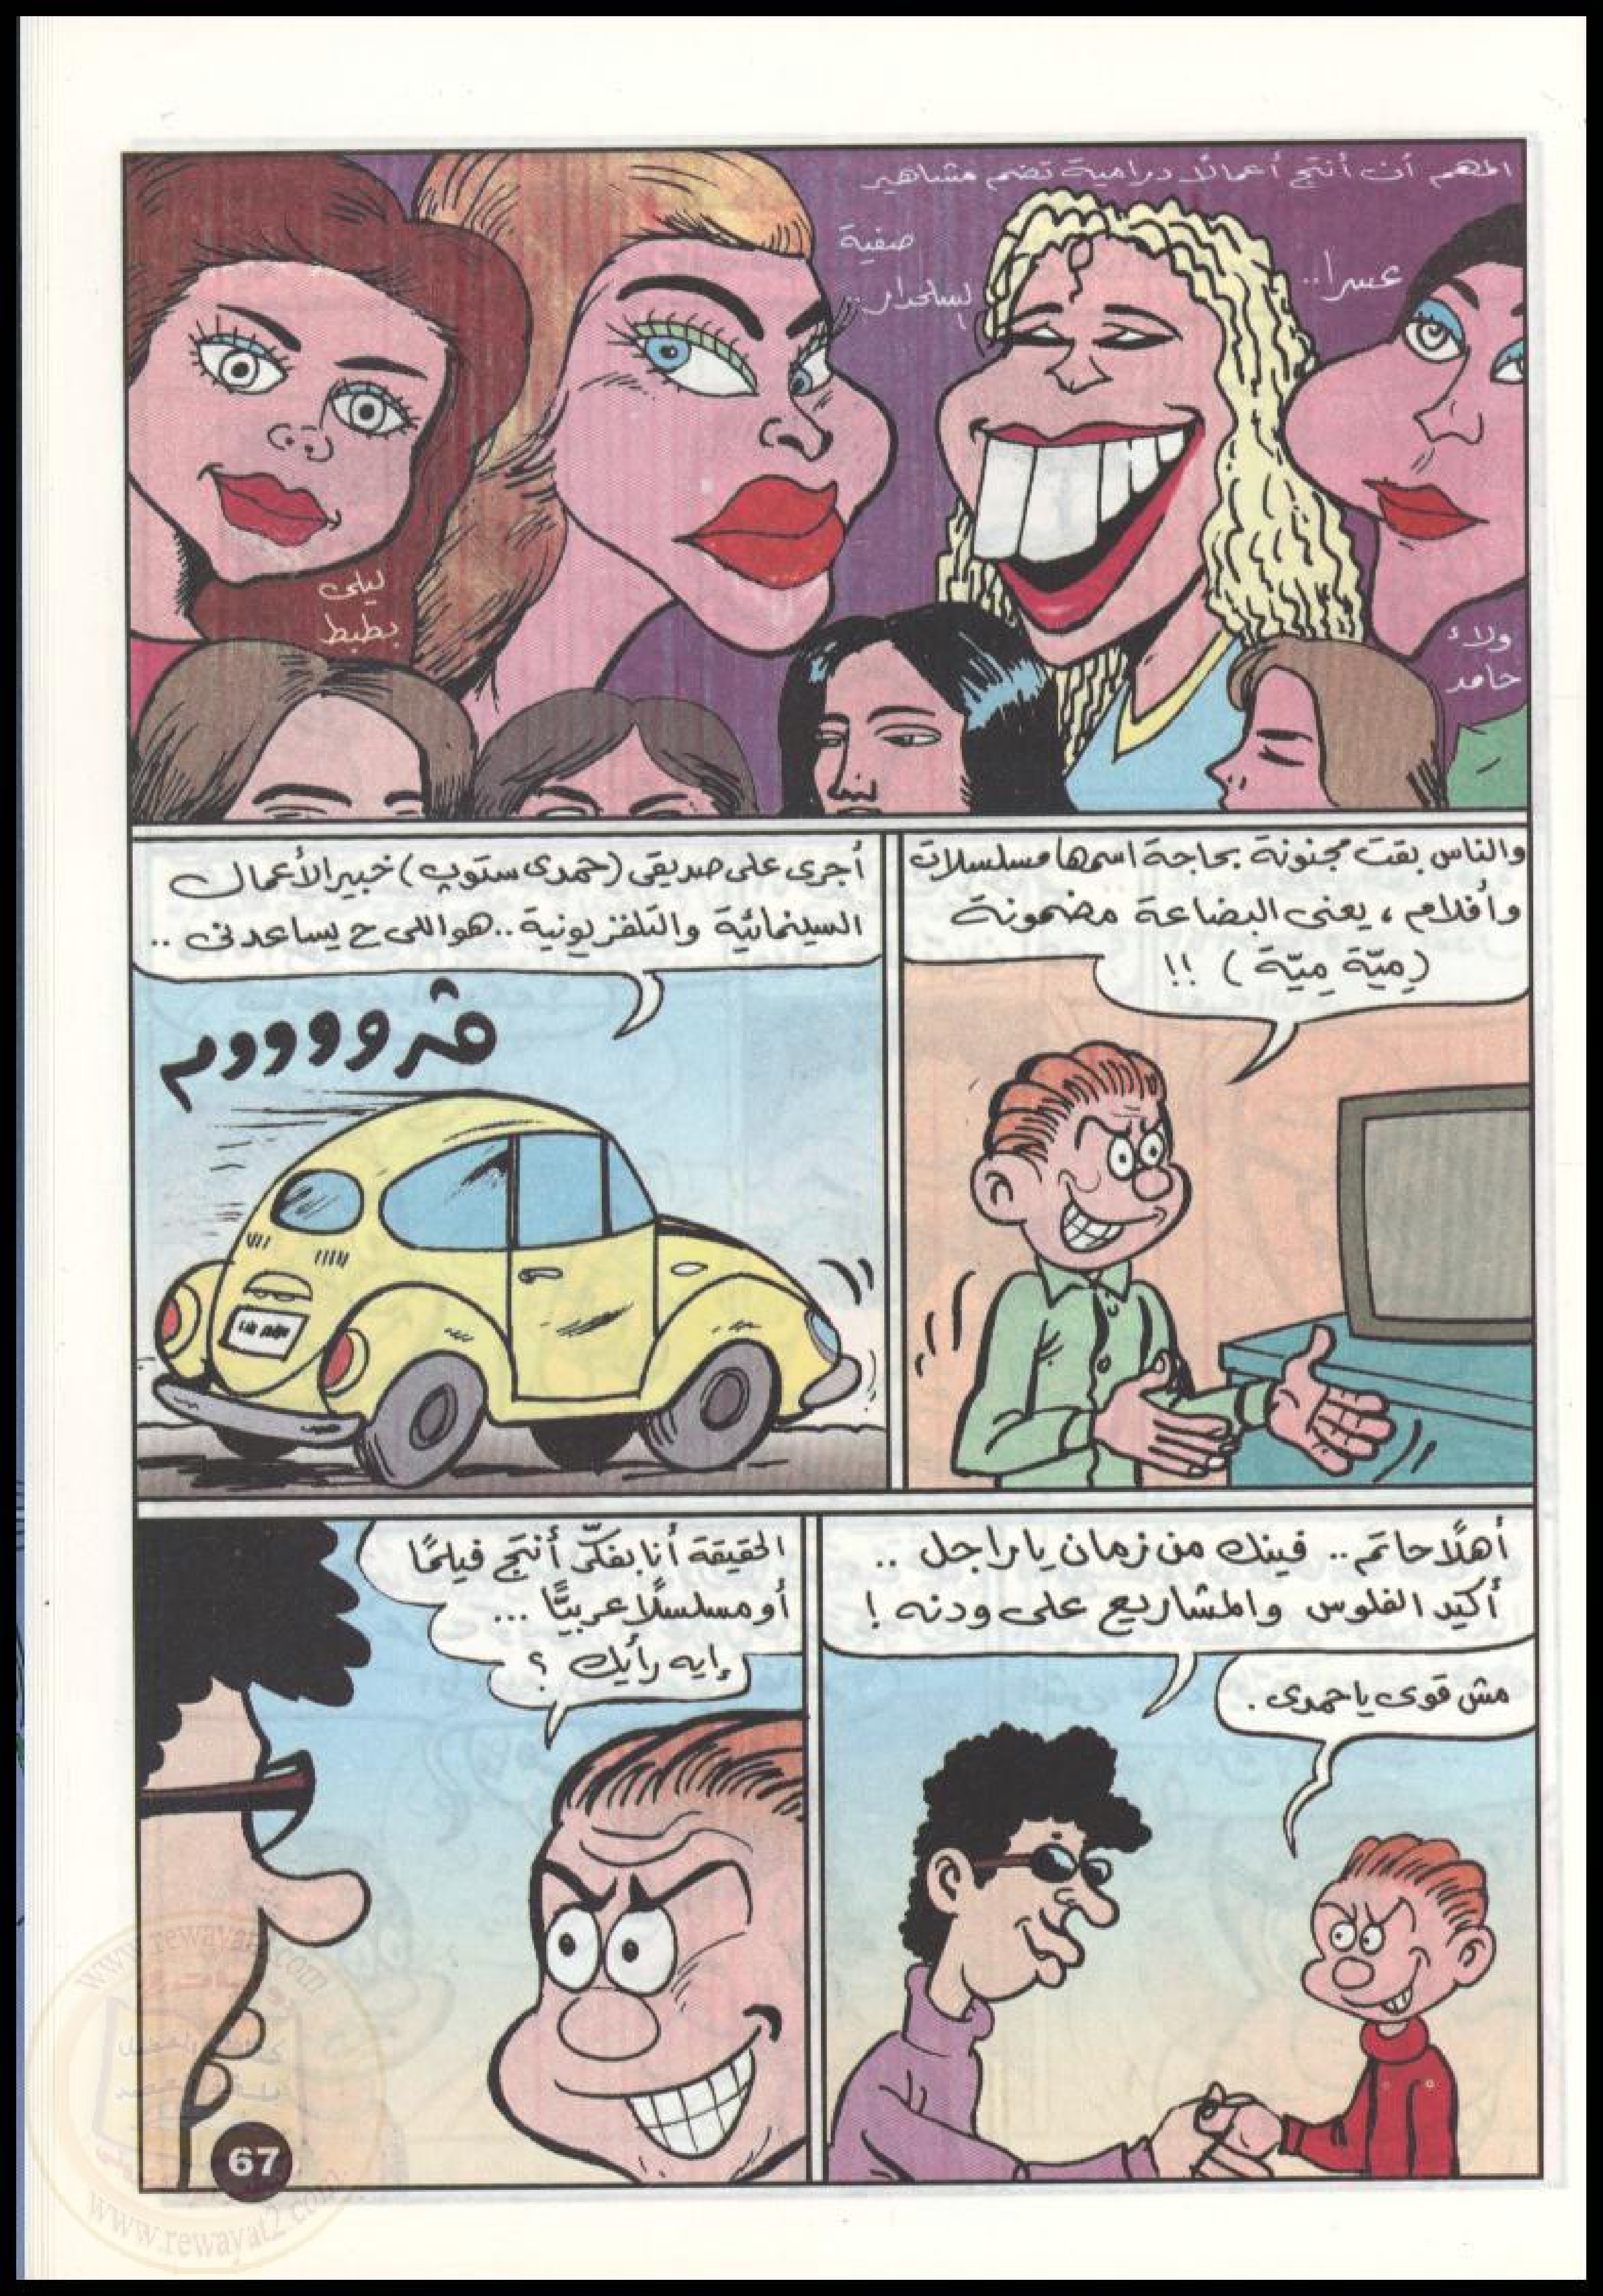 المهم أن أنتج أعمالًا درامية تضم مشاهير
عسرا..
صفية
إسلحدار..
ولاء
حامد
ليلى
بطبط
والناس بقت مجنونة بحاجة اسمها مسلسلات
وأفلام، يعنى البضاعة مضمونة
(مِيّة مِيّة) !!
أجرى على صديقى (حمدى ستوب) خبير الأعمال
السينمائية والتلفزيونية.. هو اللى ح يساعدنى..
ڤرووووم
أهلًا حاتم.. فينك من زمان يا راجل..
أكيد الفلوس والمشاريع على ودنه!
مش قوى يا حمدى.
الحقيقة أنا بفكّر أنتج فيلمًا
أو مسلسلًا عربيًّا...
إيه رأيك؟
67
www.rewayat2.com
www.rewayat2.com